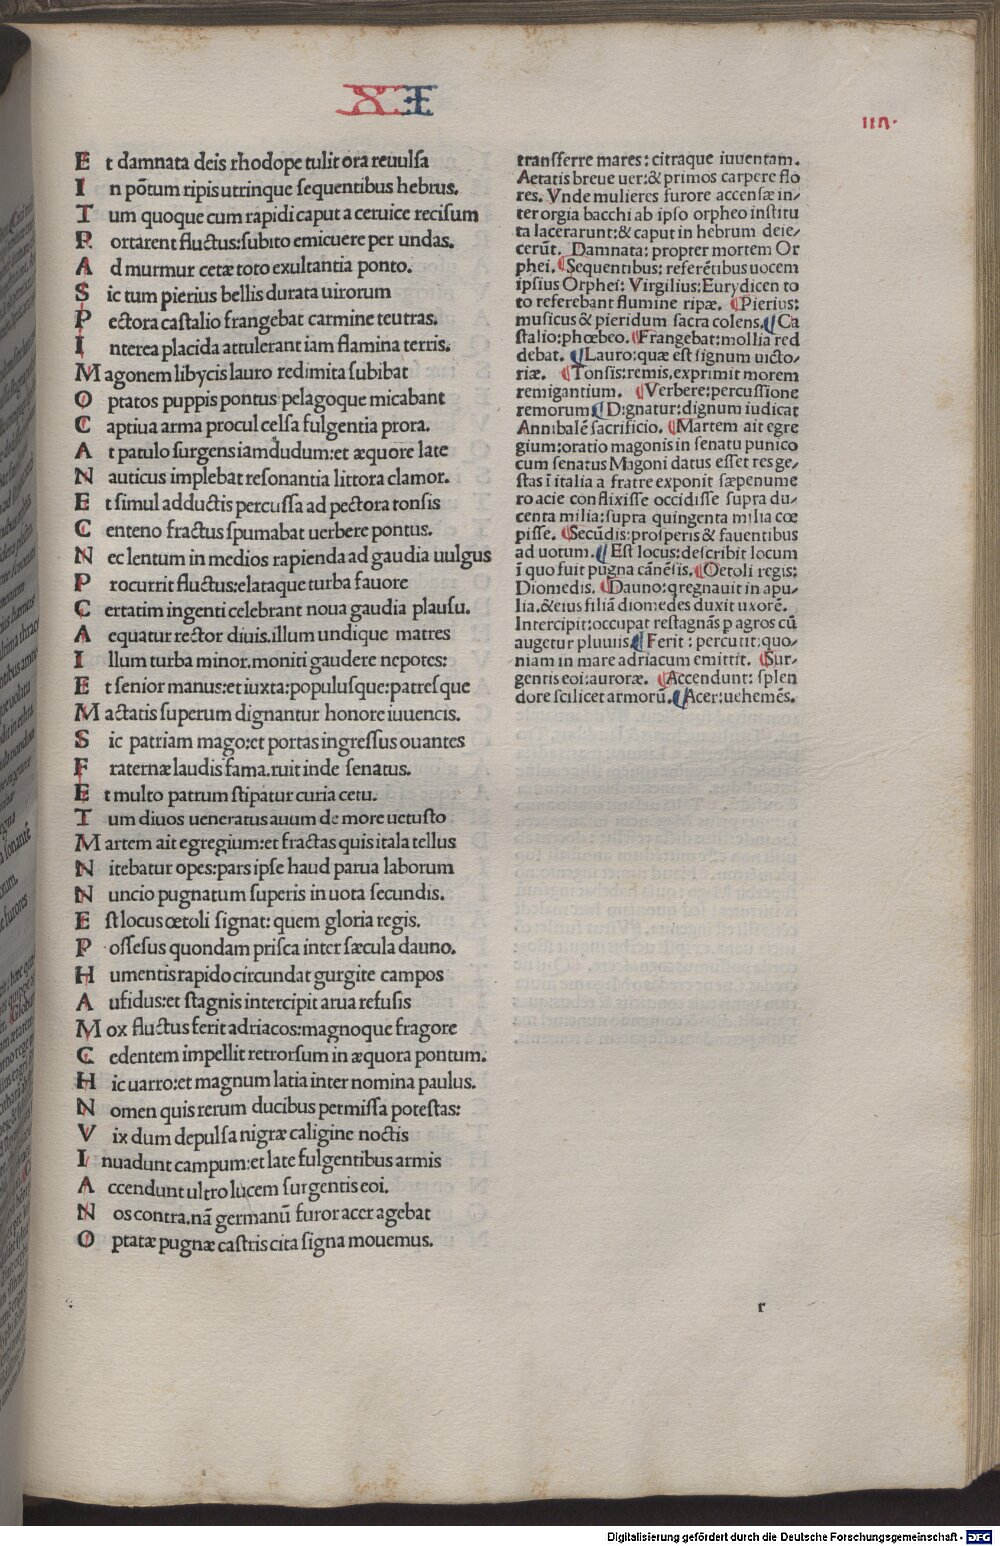 XI
E t damnata deis rhodope tulit ora reuulsa
I n põtum ripis utrinque sequentibus hebrus.
T um quoque cum rapidi caput a ceruice recisum
P ortarent fluctus:subito emicuere per undas.
A d murmur cetæ toto exultantia ponto.
S ic tum pierius bellis durata uirorum
P ectora castalio frangebat carmine teutras.
I nterea placida attulerant iam flamina terris.
M agonem libycis lauro redimita subibat
O ptatos puppis pontus pelagoque micabant
C aptiua arma procul celsa fulgentia prora.
A t patulo surgens iamdudum:et æquore late
N auticus implebat resonantia littora clamor.
E t simul adductis percussa ad pectora tonsis
C enteno fractus spumabat uerbere pontus.
N ec lentum in medios rapienda ad gaudia uulgus
P rocurrit fluctus:elataque turba fauore
C ertatim ingenti celebrant noua gaudia plausu.
A equatur rector diuis.illum undique matres
I llum turba minor.moniti gaudere nepotes:
E t senior manus:et iuxta:populusque:patresque
M actatis superum dignantur honore iuuencis.
S ic patriam mago:et portas ingressus ouantes
F raternæ laudis fama.ruit inde senatus.
E t multo patrum stipatur curia cetu.
T um diuos ueneratus auum de more uetusto
M artem ait egregium:et fractas quis itala tellus
N itebatur opes:pars ipse haud parua laborum
N uncio pugnatum superis in uota secundis.
E st locus œtoli signat: quem gloria regis.
P ossesus quondam prisca inter sæcula dauno.
H umentis rapido circundat gurgite campos
A ufidus:et stagnis intercipit arua refusis
M ox fluctus ferit adriacos:magnoque fragore
C edentem impellit retrorsum in æquora pontum.
H ic uarro:et magnum latia inter nomina paulus.
N omen quis rerum ducibus permissa potestas:
V ix dum depulsa nigræ caligine noctis
I nuadunt campum:et late fulgentibus armis
A ccendunt ultro lucem surgentis eoi.
N os contra.nã germanũ furor acer agebat
O ptatæ pugnæ castris cita signa mouemus.
transferre mares: citraque iuuentam.
Aetatis breue uer:& primos carpere flo
res. Vnde mulieres furore accensæ in-
ter orgia bacchi ab ipso orpheo institu
ta lacerarunt:& caput in hebrum deie-
cerũt. Damnata: propter mortem Or
phei. Sequentibus: referẽtibus uocem
ipsius Orphei: Virgilius:Eurydicen to
to referebant flumine ripæ. Pierius:
musicus & pieridum sacra colens. Ca
stalio:phœbeo. Frangebat:mollia red
debat. Lauro:quæ est signum uicto-
riæ. Tonsis:remis.exprimit morem
remigantium. Verbere:percussione
remorum Dignatur:dignum iudicat
Annibalẽ sacrificio. Martem ait egre
gium:oratio magonis in senatu punico
cum senatus Magoni datus esset res ge-
stas ĩ italia a fratre exponit sæpenume
ro acie conflixisse occidisse supra du-
centa milia:supra quingenta milia cœ
pisse. Secũdis:prosperis & fauentibus
ad uotum. Est locus:describit locum
ĩ quo fuit pugna cãnẽsis. Oetoli regis:
Diomedis. Dauno:q regnauit in apu-
lia.& eius filiã diomedes duxit uxorẽ.
Intercipit:occupat restagnãs p agros cũ
augetur pluuiis. Ferit : percutit:quo-
niam in mare adriacum emittit. Sur-
gentis eoi:auroræ. Accendunt: splen
dore scilicet armorũ. Acer:uehemẽs.
r
Digitalisierung gefördert durch die Deutsche Forschungsgemeinschaft - DFG